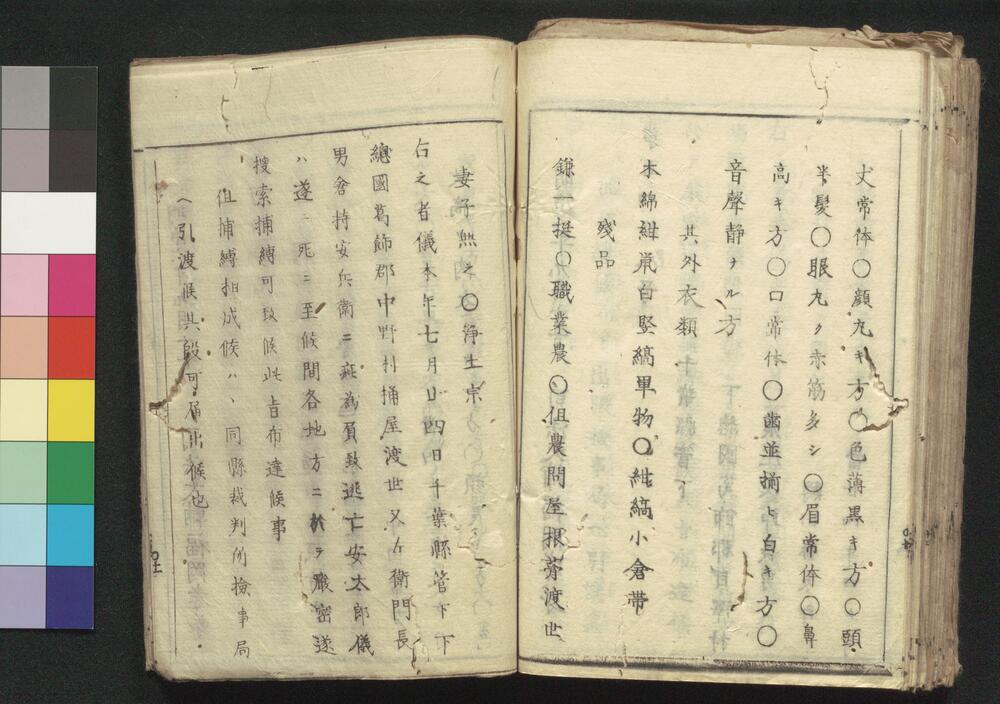 丈常体〇顔丸キ方〇色薄黒キ方〇頭
半髪〇眼丸ク赤筋多シ〇眉常体〇鼻
高キ方〇口常体〇歯並揃ヒ白キ方〇
音聲静ナル方
其外衣類
木綿紺鼠白竪縞単物〇紺縞小倉帯
殘品
鎌一挺〇職業農〇但農問屋根葺渡世
妻子無之〇浄土宗
右之者儀本年七月廿四日千葉縣管下下
總國葛飾郡中野村桶屋渡世又右衛門長
男倉持安兵衛ニ疵為負致逃亡安太郎儀
ハ遂ニ死ニ至候間各地方ニ於テ嚴密遂
搜索捕縛可致候此旨布達候事
但捕縛相成候ハヽ同縣裁判所撿事局
ヘ引渡候其段可届出候也